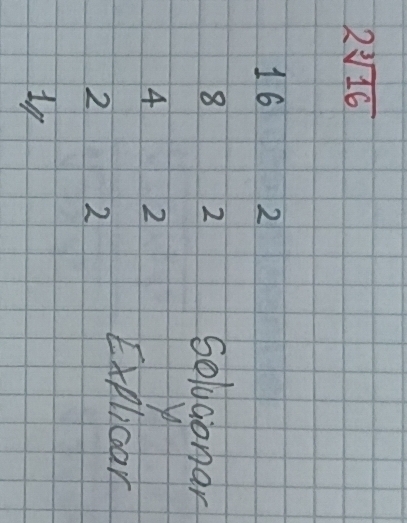 2∛16
16 2
8 2
4 2
2 2
1//
Solucionar
y
Explicar